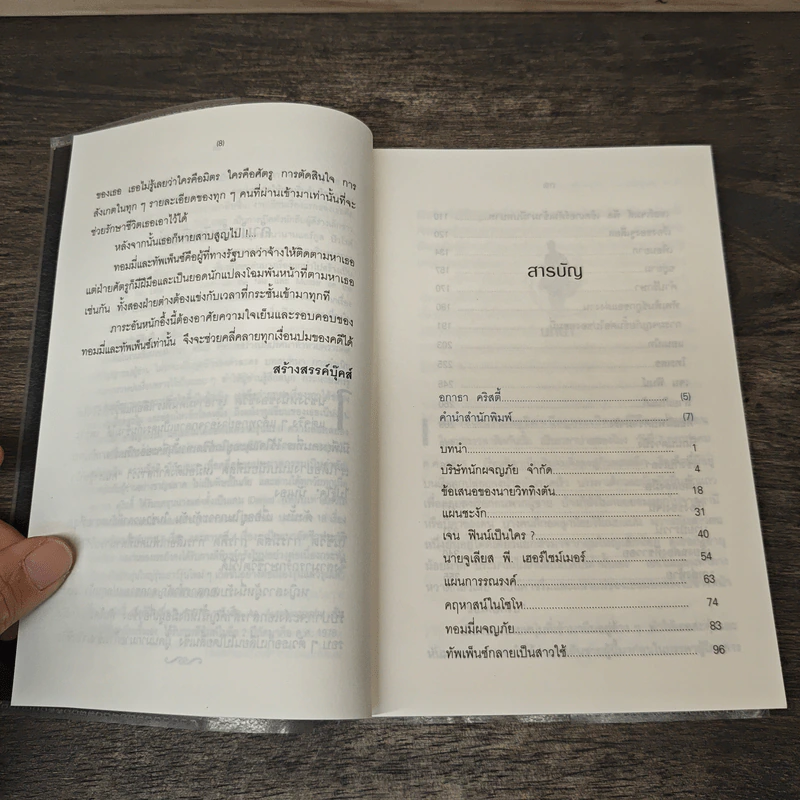 (8)
ของเธอ เธอไม่รู้เลยว่าใครคือมิตร ใครคือศัตรู การตัดสินใจ การ
สังเกตในทุก ๆ รายละเอียดของทุก ๆ คนที่ผ่านเข้ามาเท่านั้นที่จะ
ช่วยรักษาชีวิตเธอเอาไว้ได้
หลังจากนั้นเธอก็หายสาบสูญไป !...
ทอมมี่และทัพเพ็นซ์คือผู้ที่ทางรัฐบาลว่าจ้างให้ติดตามหาเธอ
แต่ฝ่ายศัตรูก็มีฝีมือและเป็นยอดนักแปลงโฉมพันหน้าที่ตามหาเธอ
เช่นกัน ทั้งสองฝ่ายต่างต้องแข่งกับเวลาที่กระชั้นเข้ามาทุกที
ภาระอันหนักอึ้งนี้ต้องอาศัยความใจเย็นและรอบคอบของ
ทอมมี่และทัพเพ็นซ์เท่านั้น จึงจะช่วยคลี่คลายทุกเงื่อนปมของคดีได้
สร้างสรรค์บุ๊คส์
สารบัญ
อกาธา คริสตี้ (5)
คำนำสำนักพิมพ์ (7)
บทนำ 1
บริษัทนักผจญภัย จำกัด 4
ข้อเสนอของนายวิททิงตัน 18
แผนชะงัก 31
เจน ฟินน์เป็นใคร ? 40
นายจูเลียส พี. เฮอร์ไซม์เมอร์ 54
แผนการรณรงค์ 63
คฤหาสน์ในโซโห 74
ทอมมี่ผจญภัย 83
ทัพเพ็นซ์กลายเป็นสาวใช้ 96